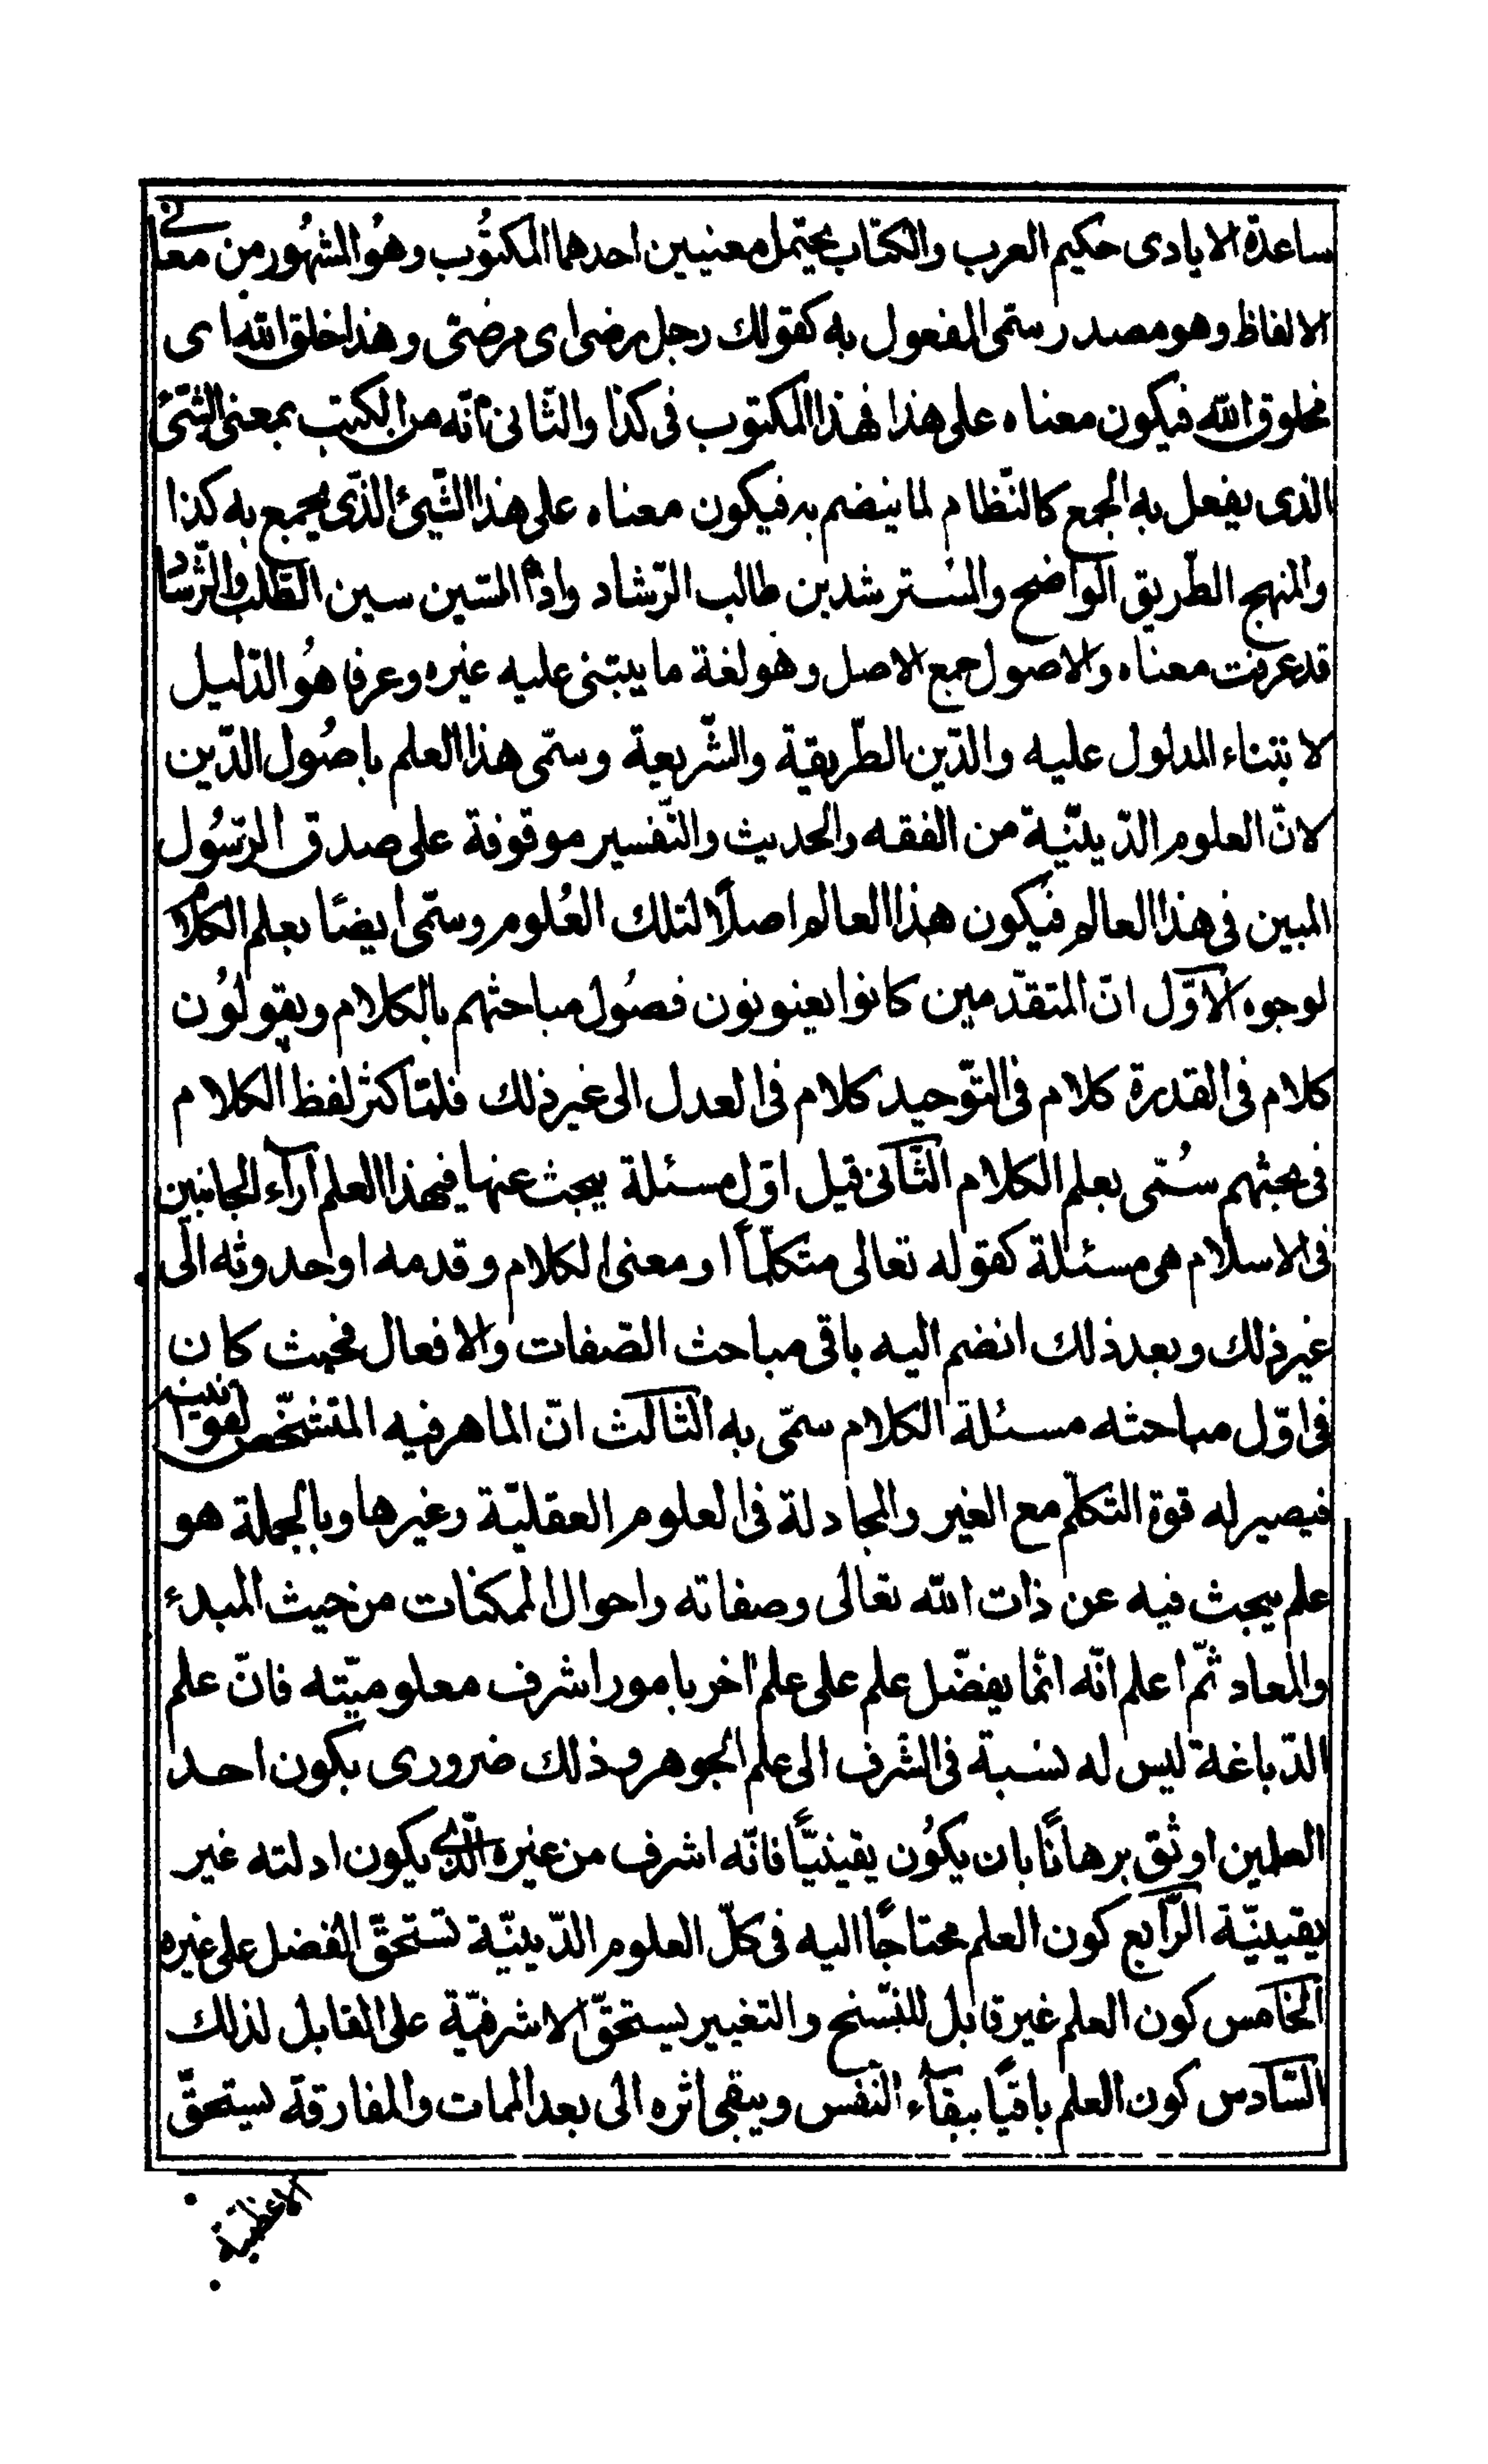 ساعدة الايادى حكيم العرب والكتاب يحتمل معنيين احدهما المكتوب وهُو المشهُور من معانى
الالفاظ وهو مصدر ستمى المفعول به كقولك رجل مرضى اى مرضىّ وهذا خلق الله اى
مخلوق الله فيكون معناه على هذا فهذا المكتوب فى كذا والثّانى انّه من الكتب بمعنى الشّئ
الذى يفعل به الجمع كالنّظام لما ينضم به فيكون معناه على هذا الشّئ الذّى يجمع به كذا
والمنهج الطّريق الواضح والمسترشدين طالب الرّشاد واذا السّين سين الطّلب والرّشاد
قد عرفت معناه والاصول جمع الاصل وهو لغة ما يبتنى عليه غيره وعرفا هُو الدّليل
لابتناء المدلول عليه والدّين الطّريقة والشّريعة وسمّى هذا العلم باصُول الدّين
لانّ العلوم الدّينيّة من الفقه والحديث والتّفسير موقوفة على صدق الرّسُول
المبين فى هذا العالم فيكون هذا العالم اصلًا لتلك العُلوم وسمّى ايضًا بعلم الكلام
لوجوه الاوّل انّ المتقدّمين كانوا يعنونون فصُول مباحثهم بالكلام ويقولوُن
كلام فى القدرة كلام فى التّوحيد كلام فى العدل الى غير ذلك فلمّا كثر لفظ الكلام
فى بحثهم سُمّى بعلم الكلام الثّانى قيل اوّل مسئلة يبحث عنها فيهذا العلم آراء الجانبين
فى الاسلام هى مسئلة كقوله تعالى متكلّمًا او معنى الكلام وقدمه او حدوثه الى
غير ذلك وبعد ذلك انضم اليه باقى مباحث الصّفات والافعال فحيث كان
فى اوّل مباحثه مسئلة الكلام سمّى به الثّالث انّ الماهر فيه المتشخّص لقوانينه
فيصير له قوة التكلّم مع الغير والمجادلة فى العلوم العقليّة وغيرها وبالجملة هو
علم يبحث فيه عن ذات الله تعالى وصفاته واحوال الممكنات من حيث المبدء
والمعاد ثمّ اعلم انّه انّما يفضّل علم على علم اخر بامور اشرف معلوميّته فانّ علم
الدّباغة ليس له نسبة فى الشّرف الى علم الجوهر وذلك ضرورى بكون احد
العلمين اوثق برهانًا بان يكوُن يقينيًّا فانّه اشرف من غيره الّذى يكون ادلته غير
يقينيّة الرّابع كون العلم محتاجًا اليه فى كلّ العلوم الدّينيّة تستحقّ الفضل على غيره
الخامس كون العلم غير قابل للنّسخ والتغيير يستحقّ الاشرفيّة على القابل لذلك
السّادس كون العلم باقيًا ببقآء النّفس ويبقى اثره الى بعد الممات والمفارقة يستحقّ